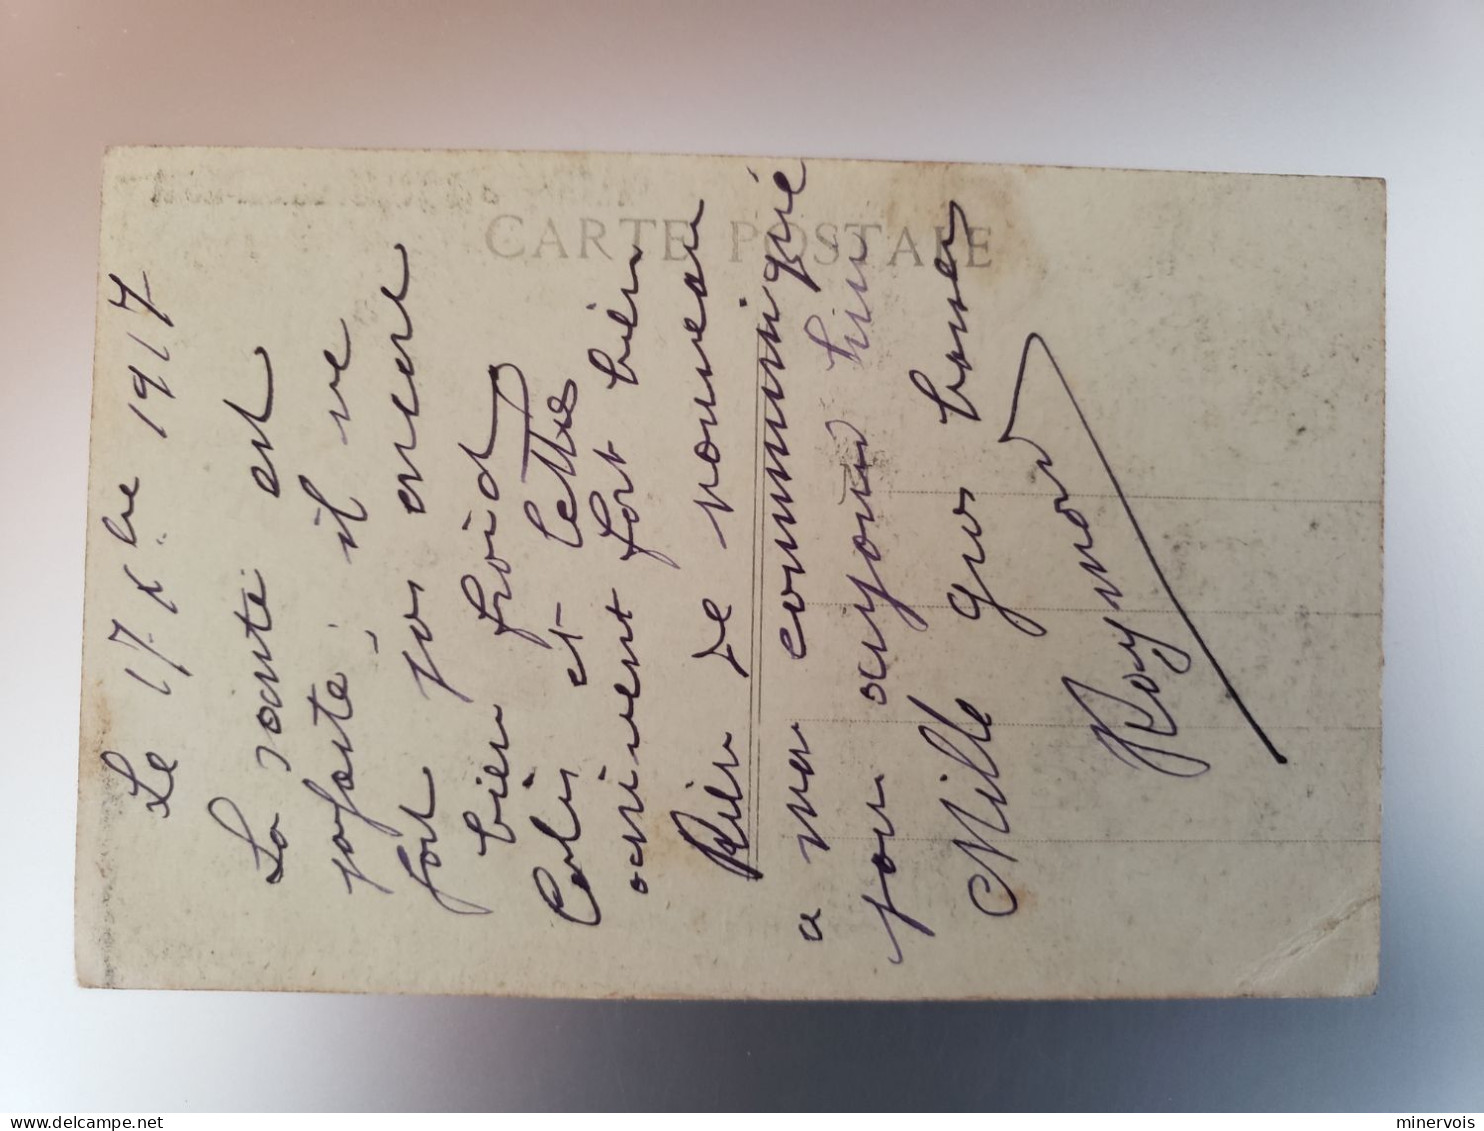 CARTE POSTALE
Le 17 Xbre 1917
La santé est
parfaite; il ne
fait pas encore
bien froid
Colis et lettres
arrivent fort bien
Rien de nouveau
a me communiqué
pour aujourd'hui
Mille gros baisers
Raymond
minervois